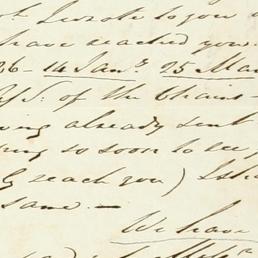 I wrote to you
have reached you
26 - 14 Jany. 25 Mar
of the Chains -
already sent
so soon to see
reach you)
same. —
We have